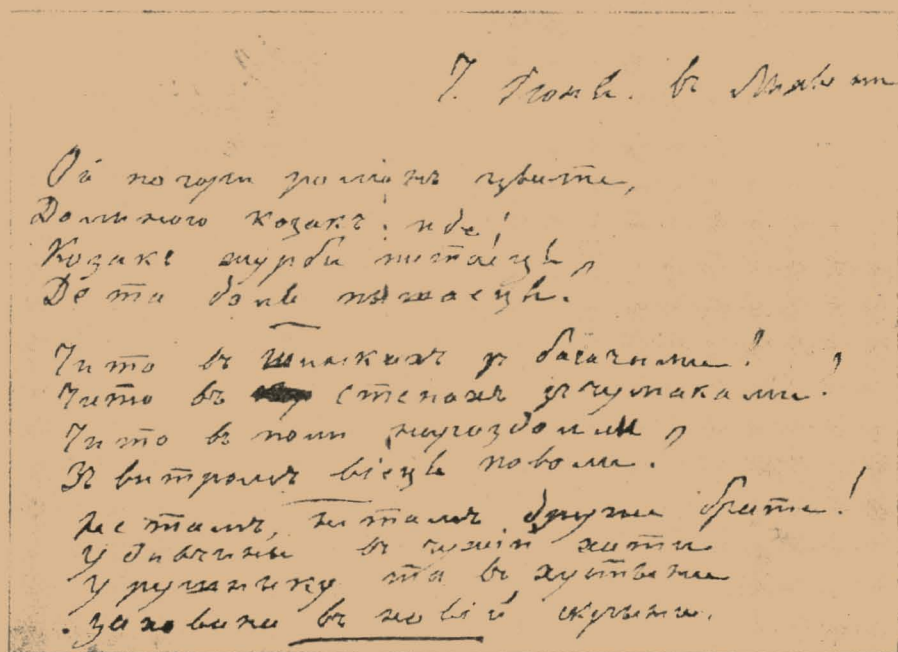 7. Июня. въ
Ой по гори романъ цвите,
Долиною козакъ иде!
Козакъ журби питаеця,
Де та доля пышаеця?
Чи то въ шинкахъ з багачами!
Чи то въ степахъ з чумаками!
Чи то въ поли на роздолли
Зъ витромъ віеця поволи?
Не тамъ, не тамъ друже брате!
У дивчины въ чужій хати
У рушныку та въ хустыни
Захована въ новій скрыни.